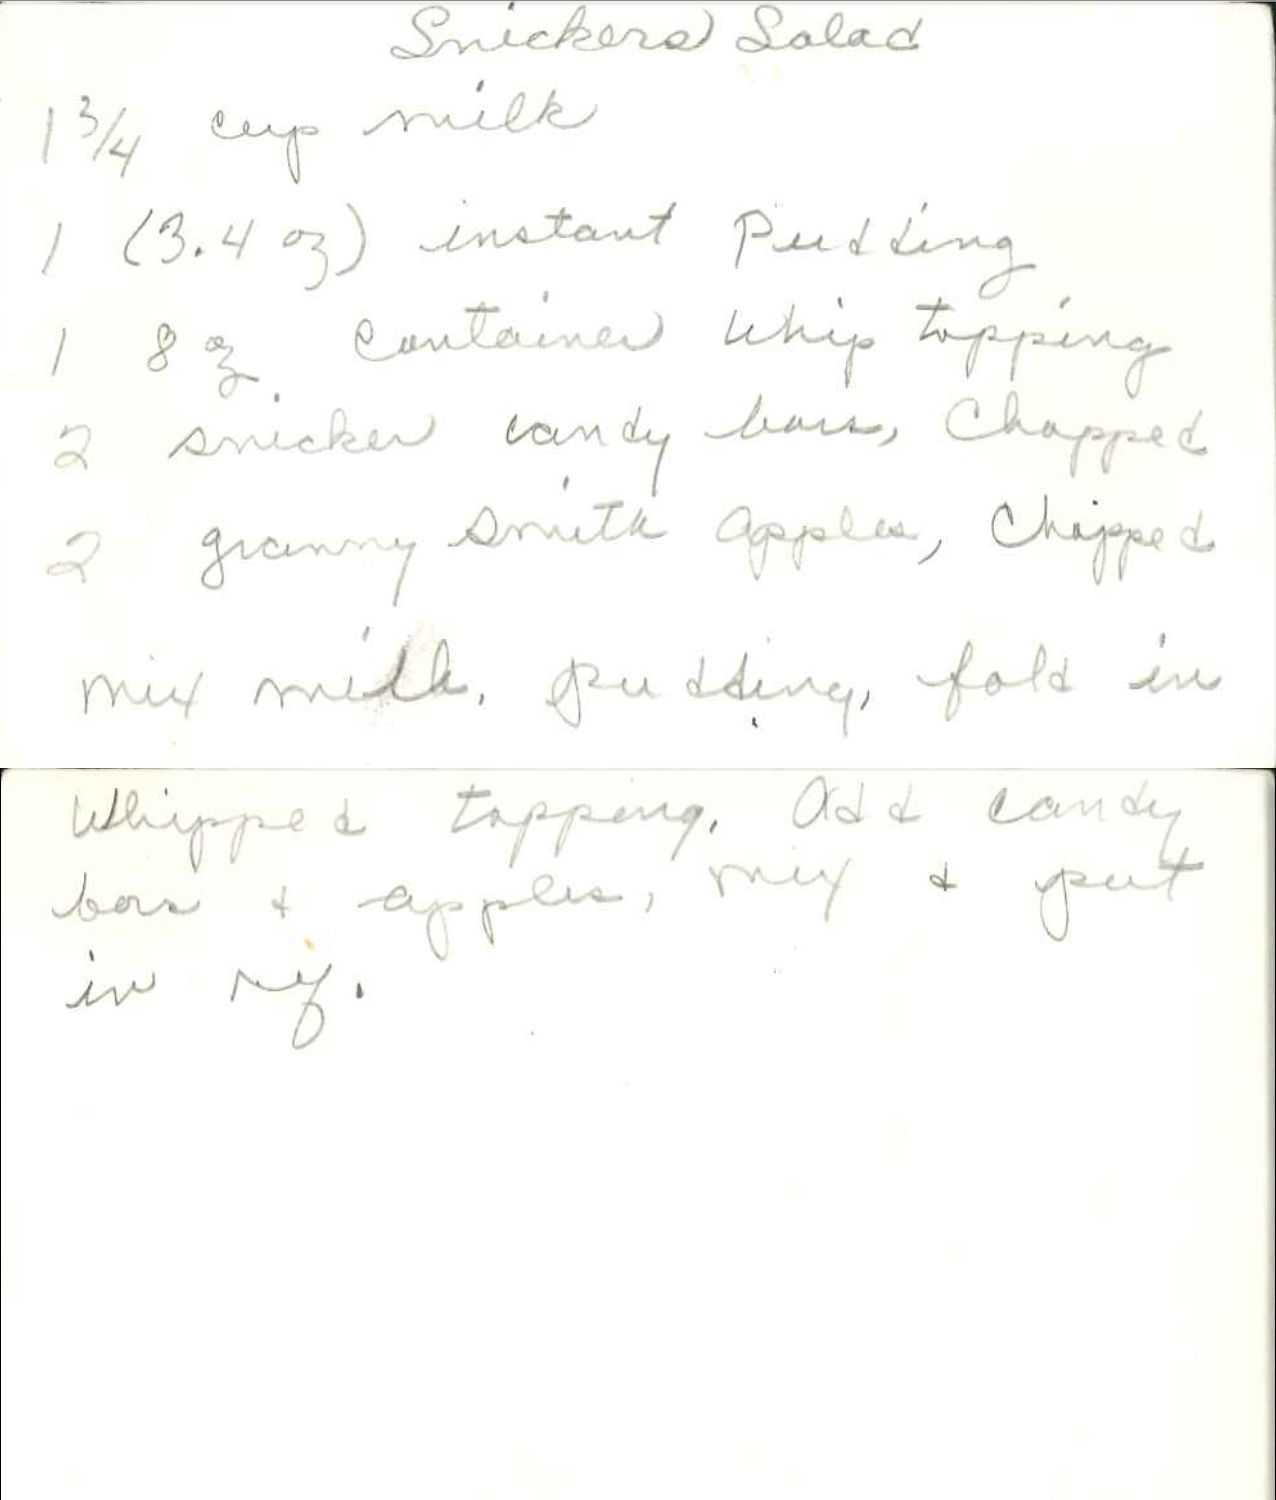 Snickers Salad
1 3/4 cup milk
1 (3.4 oz) instant Pudding
1 8 oz. Container Whip topping
2 snicker candy bars, Chopped
2 granny Smith Apples, Chopped
Mix milk, pudding, fold in
Whipped topping, Add candy
bars + apples, mix + put
in ref.